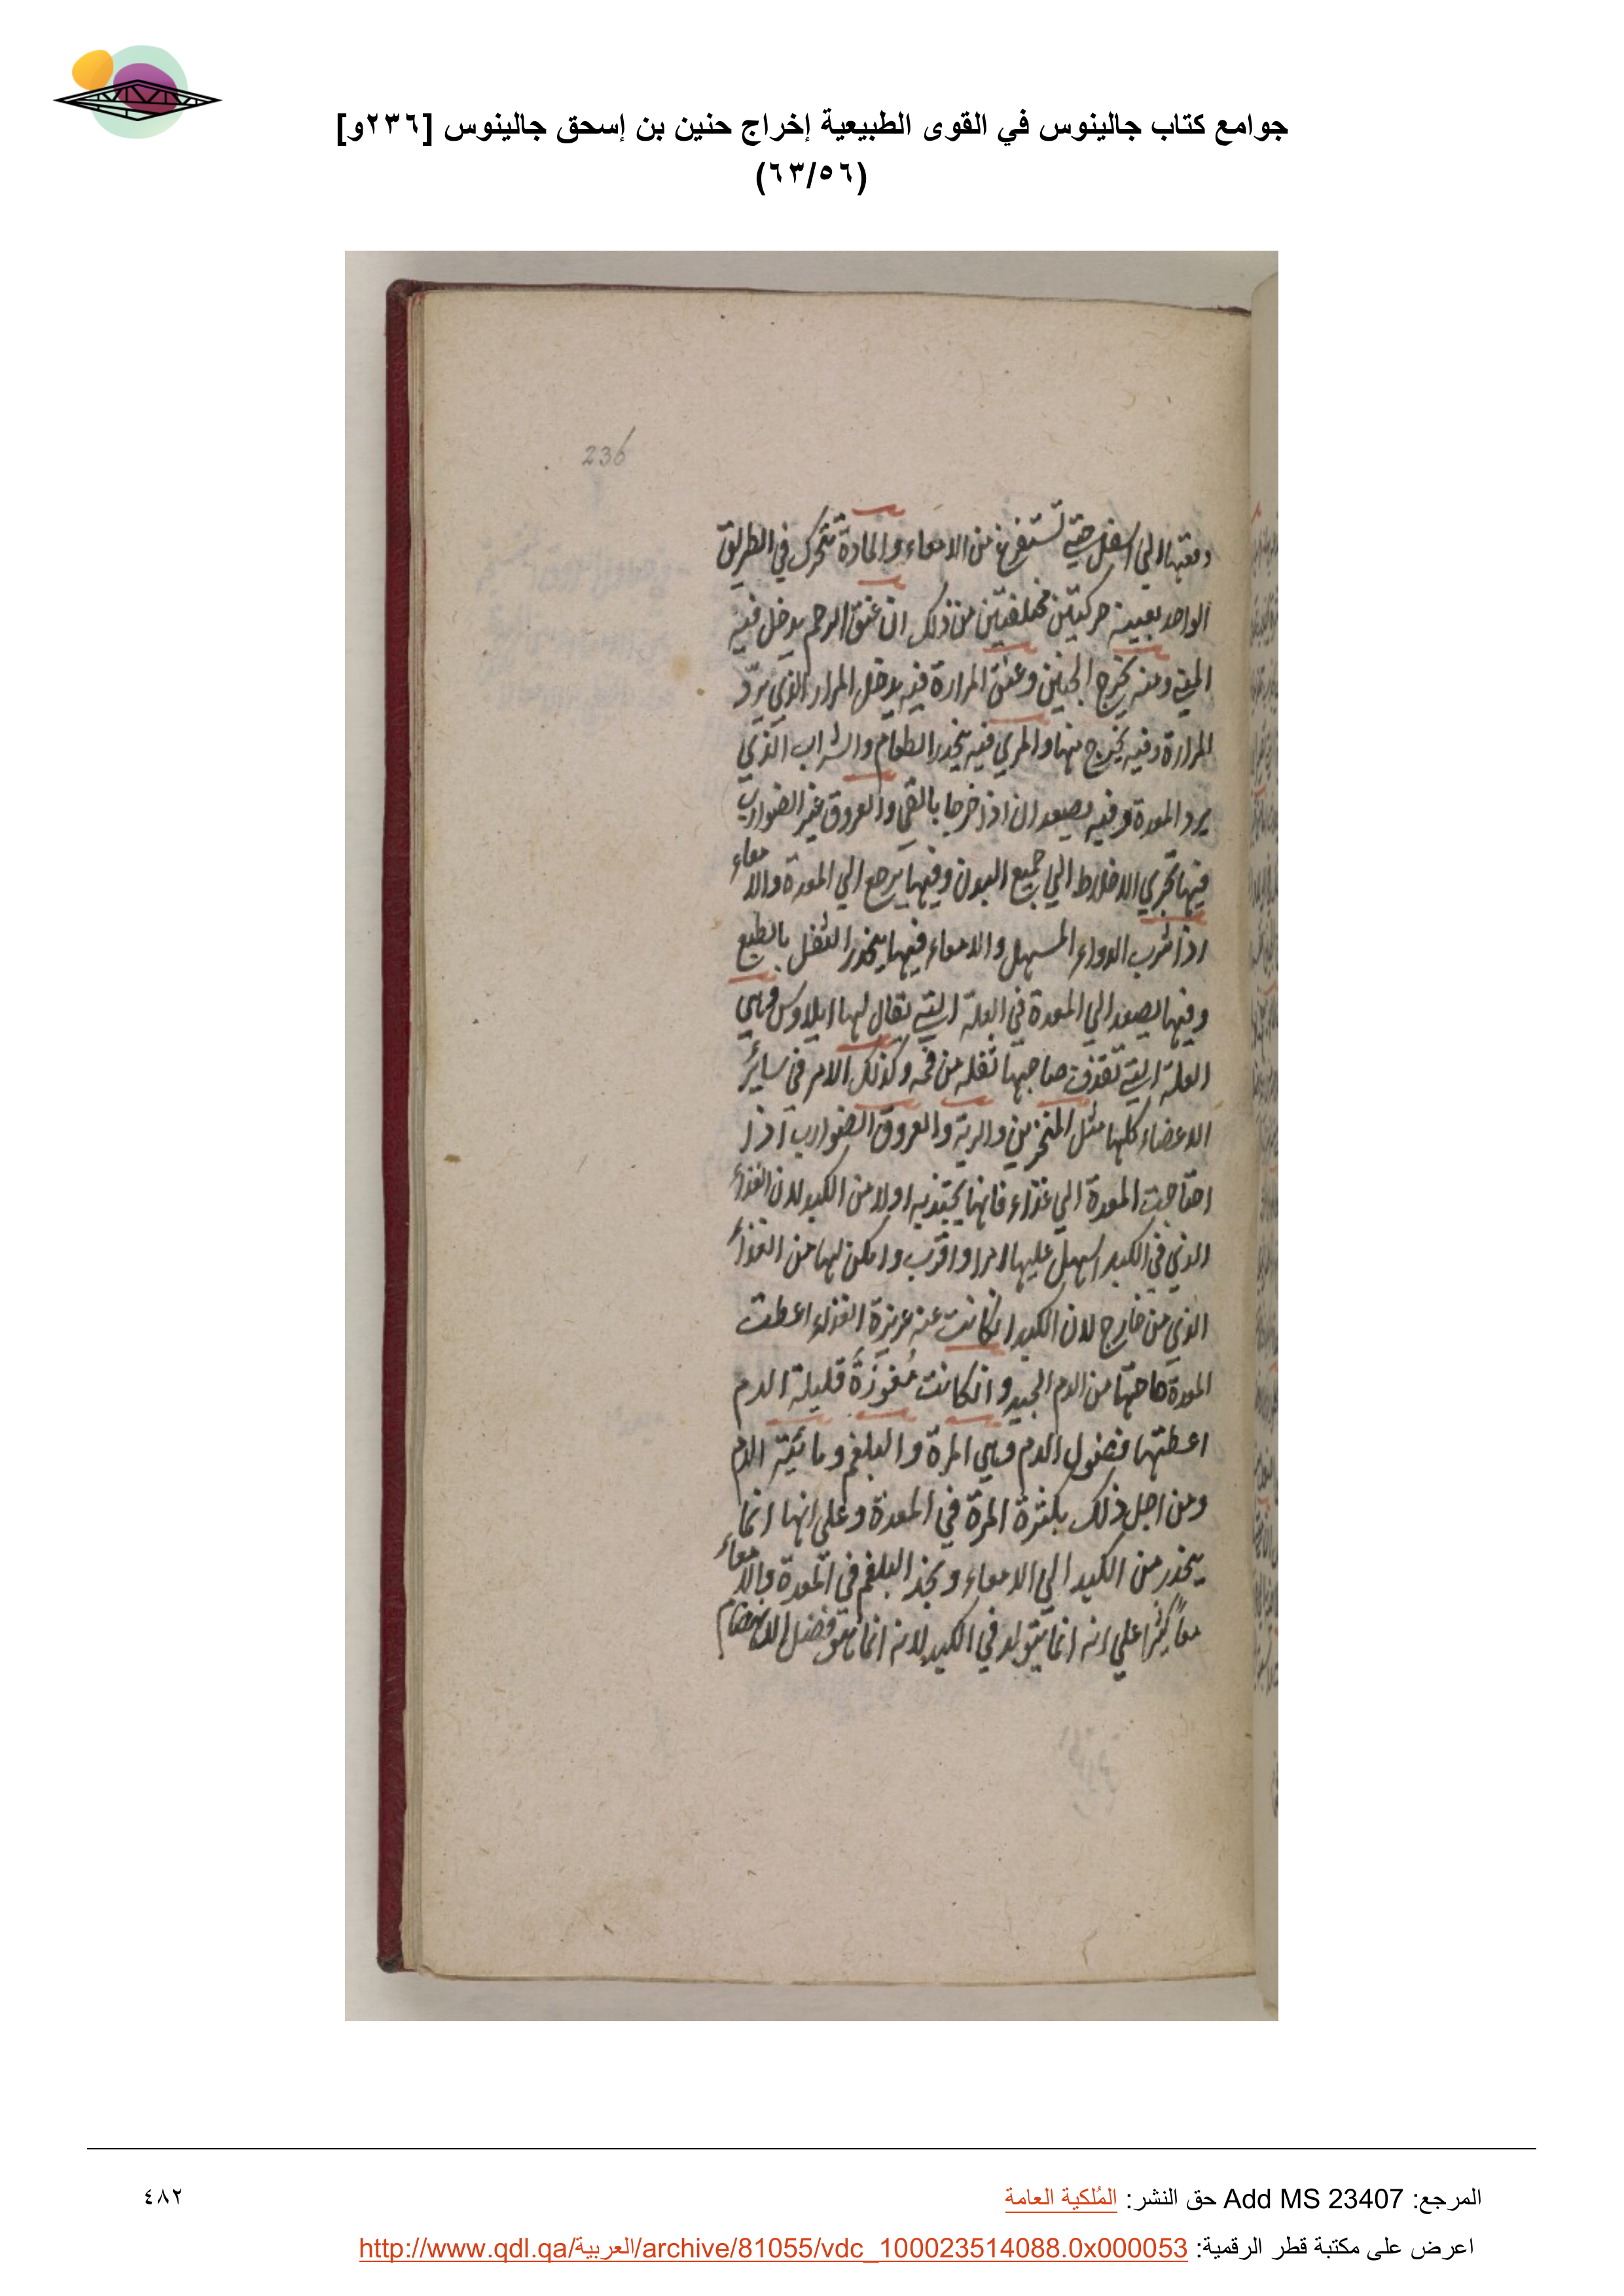 جوامع كتاب جالينوس في القوى الطبيعية إخراج حنين بن إسحق جالينوس [٢٣٦و]
(٦٣/٥٦)
236
دفعتها الي اسفل حتي تستفرغ من الامعاء والمادة تتحرك في الطريق
الواحد بعينه حركتين مختلفتين من ذلك ان عنق الرحم يدخل فيه
المني ومنه يخرج الجنين وعنق المرارة فيه يدخل المرار الذي يرد
المرارة وفيه يخرج منها والمري فيه ينحدر الطعام والشراب الذي
يرد المعدة وفيه يصعدان اذا خرجا بالقي والعروق غير الضوارب
فيها تجري الاخلاط الي جميع البدن وفيها يرجع الي المعدة والامعاء
اذا شرب الدواء المسهل والامعاء فيها ينحدر الثفل بالطبع
وفيها يصعد الي المعدة في العلة التي يقال لها ايلاوس وهي
العلة التي تقذف صاحبها ثفله من فمه وكذلك الامر في سائر
الاعضاء كلها مثل المنخرين والرية والعروق الضوارب اذا
احتاجت المعدة الي غذاء فانها يجتذبه اولا من الكبد لان الغذاء
الذي في الكبد اسهل عليها امرا واقرب وامكن لها من الغذاء
الذي من خارج لان الكبد انكانت عنه غزيرة الغذاء اعطت
المعدة حاجتها من الدم الجيد وانكانت مغوزة قليلة الدم
اعطتها فضول الدم وهي المرة والبلغم ومائية الدم
ومن اجل ذلك يكثرة المرة في المعدة وعلي انها انما
ينحدر من الكبد الي الامعاء ونجد البلغم في المعدة والامعاء
معاً كثيرا علي انه انما يتولد في الكبد لانه انما هو فضل الانهضام
المرجع: Add MS 23407 حق النشر: المُلكية العامة
٤٨٢
اعرض على مكتبة قطر الرقمية: http://www.qdl.qa/العربية/archive/81055/vdc_100023514088.0x000053